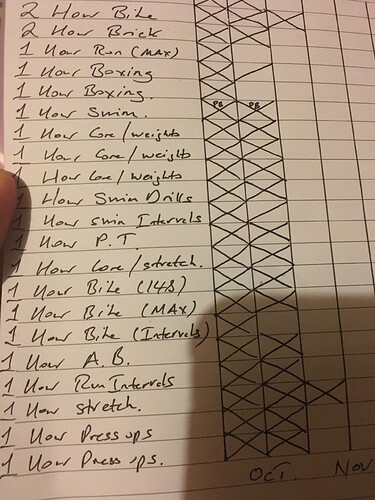 2 Hour Bike
2 Hour Brick
1 Hour Run (MAX)
1 Hour Boxing
1 Hour Boxing.
1 Hour Swim. PB PB
1 Hour Core/weights
1 Hour Core/weights
1 Hour Core/weights
1 Hour Swim Drills
1 Hour Swim Intervals
1 Hour P.T.
1 Hour Core/stretch.
1 Hour Bike (148)
1 Hour Bike (MAX)
1 Hour Bike (Intervals)
1 Hour A.B.
1 Hour Run Intervals
1 Hour stretch.
1 Hour Press ups
1 Hour Press ups.
OCT. NOV